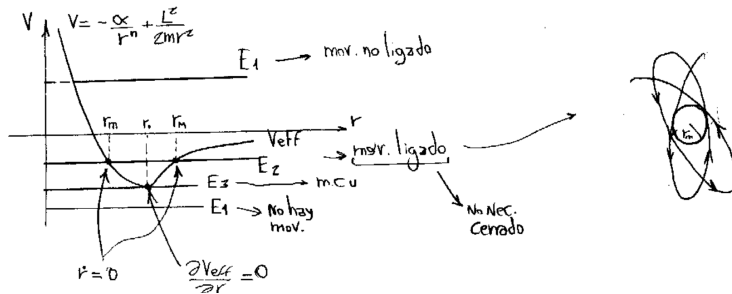 V
V = -α/rⁿ + L²/2mr²
E₁ → mov. no ligado
rm r₀ rM r
Veff
E₂ → mov. ligado
rm
E₃ → m.c.u
E1 → No hay mov.
No Nec. Cerrado
ṙ = 0
∂Veff/∂r = 0